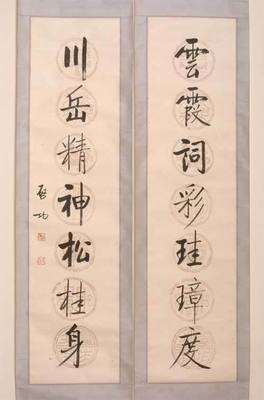 雲霞詞彩珪璋度
川岳精神松桂身
启功